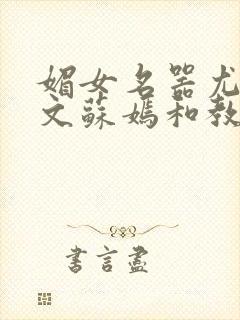 媚女名器尤
文蘇媽和教
書言盡